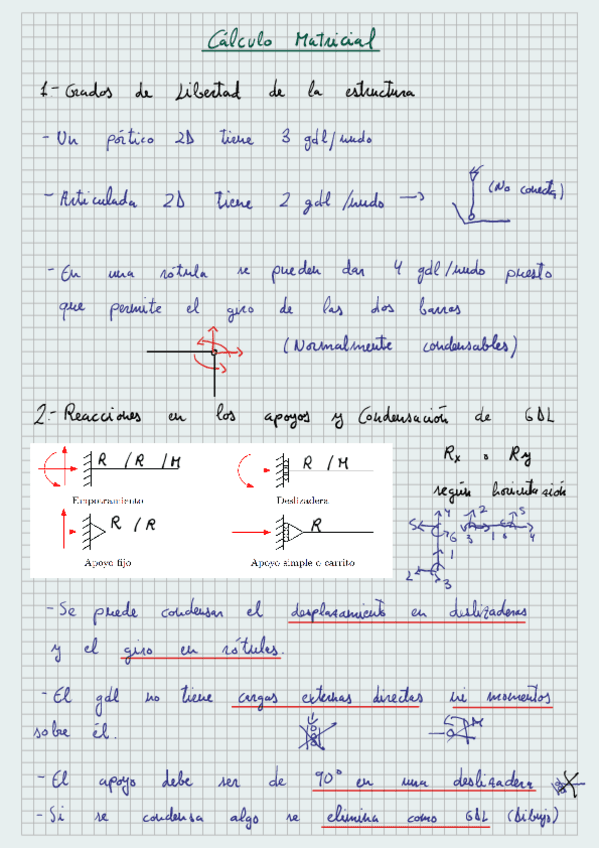 Cálculo Matricial
1.- Grados de Libertad de la estructura
- Un pórtico 2D tiene 3 gdl/nudo
- Articulada 2D tiene 2 gdl/nudo → (No conecta)
- En una rótula se pueden dar 4 gdl/nudo puesto
que permite el giro de las dos barras
(Normalmente condensables)
2.- Reacciones en los apoyos y Condensación de GDL
R /R /M
Empotramiento
R /M
Deslizadera
Rx o Ry
según horientasión
R /R
Apoyo fijo
R
Apoyo simple o carrito
4 2 5
5 6 3 1 6 4
1
2 3
- Se puede condensar el desplazamiento en deslizaderas
y el giro en rótulas.
- El gdl no tiene cargas externas directas ni momentos
sobre él.
M
- El apoyo debe ser de 90° en una deslizadera
- Si se condensa algo se elimina como GDL (Dibujo)